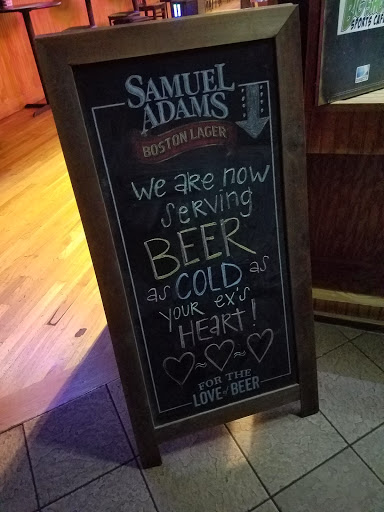 SPORTS CAFE
SAMUEL
ADAMS
BOSTON LAGER
We ARE NOW
SeRViNG
BEER
as COLD as
YOUR ex's
HEART!
FOR THE
LOVE of BEER